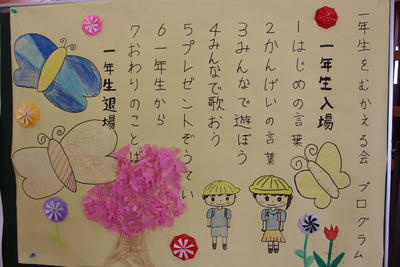 一年生をむかえる会 プログラム
一年生入場
1はじめの言葉
2かんげいの言葉
3みんなで遊ぼう
4みんなで歌おう
5プレゼントぞうてい
6一年生から
7おわりのことば
一年生退場